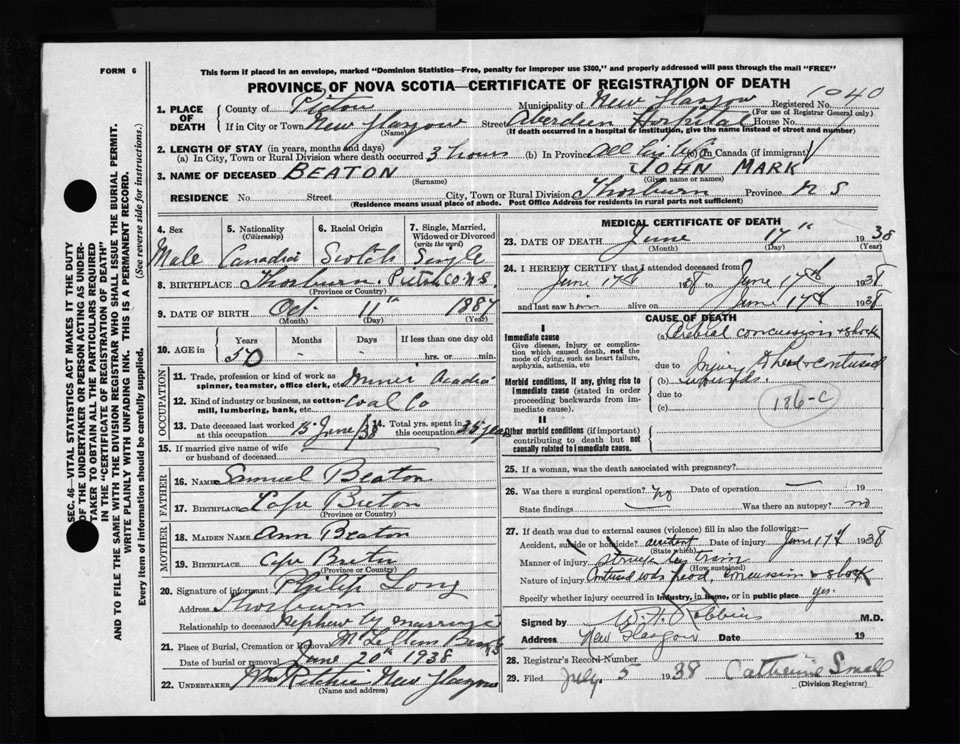 FORM 6
This form if placed in an envelope, marked "Dominion Statistics—Free, penalty for improper use $300," and properly addressed will pass through the mail "FREE"
PROVINCE OF NOVA SCOTIA—CERTIFICATE OF REGISTRATION OF DEATH
1040
1. PLACE OF DEATH
County of Pictou Municipality of New Glasgow Registered No.
(For use of Registrar General only)
If in City or Town New Glasgow Street Aberdeen Hospital House No.
(Name) (If death occurred in a hospital or institution, give the name instead of street and number)
2. LENGTH OF STAY (in years, months and days)
(a) In City, Town or Rural Division where death occurred 3 hours (b) In Province All his life (c) In Canada (if immigrant)
3. NAME OF DECEASED BEATON JOHN MARK
(Surname) (Given name or names)
RESIDENCE No. Street City, Town or Rural Division Thorburn Province N S
(Residence means usual place of abode. Post Office Address for residents in rural parts not sufficient)
SEC. 46—VITAL STATISTICS ACT MAKES IT THE DUTY
OF THE UNDERTAKER OR PERSON ACTING AS UNDER-
TAKER TO OBTAIN ALL THE PARTICULARS REQUIRED
IN THE "CERTIFICATE OF REGISTRATION OF DEATH"
AND TO FILE THE SAME WITH THE DIVISION REGISTRAR WHO SHALL ISSUE THE BURIAL PERMIT.
WRITE PLAINLY WITH UNFADING INK. THIS IS A PERMANENT RECORD.
Every item of information should be carefully supplied. (See reverse side for instructions.)
4. Sex 5. Nationality 6. Racial Origin 7. Single, Married,
(Citizenship) Widowed or Divorced
(write the word)
Male Canadian Scotch Single
8. BIRTHPLACE Thorburn. Pictou Co N.S
(Province or Country)
9. DATE OF BIRTH Oct. 11th 1887
(Month) (Day) (Year)
10. AGE in Years Months Days If less than one day old
50 - - hrs. or min.
OCCUPATION
11. Trade, profession or kind of work as
spinner, teamster, office clerk, etc. Miner Acadia
12. Kind of industry or business, as cotton-
mill, lumbering, bank, etc. Coal Co
13. Date deceased last worked at this occupation 15 June/38 14. Total yrs. spent in this occupation 35 years
15. If married give name of wife
or husband of deceased
FATHER
16. Name Samuel Beaton
17. Birthplace Cape Breton
(Province or Country)
MOTHER
18. Maiden Name Ann Beaton
19. Birthplace Cape Breton
(Province or Country)
20. Signature of informant Philip Long
Address Thorburn
Relationship to deceased nephew by marriage
21. Place of Burial, Cremation or Removal
Date of burial or removal June 20th 1938
22. UNDERTAKER Wm Ritchie New Glasgow
(Name and address)
MEDICAL CERTIFICATE OF DEATH
23. DATE OF DEATH June 17th 1938
(Month) (Day) (Year)
24. I HEREBY CERTIFY that I attended deceased from
June 17th 1938 to June 17th 1938
and last saw him alive on June 17th 1938
CAUSE OF DEATH
I
Immediate cause
Give disease, injury or complica-
tion which caused death, not the
mode of dying, such as heart failure,
asphyxia, asthenia, etc
(a) concussion & shock
due to
Injury head & contused
(b) wounds.
due to
(c)
186-C
Morbid conditions, if any, giving rise to
immediate cause (stated in order
proceeding backwards from im-
mediate cause).
II
Other morbid conditions (if important)
contributing to death but not
causally related to immediate cause.
25. If a woman, was the death associated with pregnancy?
26. Was there a surgical operation? no Date of operation — 19
State findings — Was there an autopsy? no
27. If death was due to external causes (violence) fill in also the following:—
Accident, suicide or homicide? accident Date of injury June 17th 1938
(State which)
Manner of injury Struck by train
(How sustained)
Nature of injury Contused wds head, concussion & shock
Specify whether injury occurred in industry, in home, or in public place yes.
Signed by W. H. Robbins M.D.
Address New Glasgow Date 19
28. Registrar's Record Number
29. Filed July 5 1938 Catherine Small
(Division Registrar)